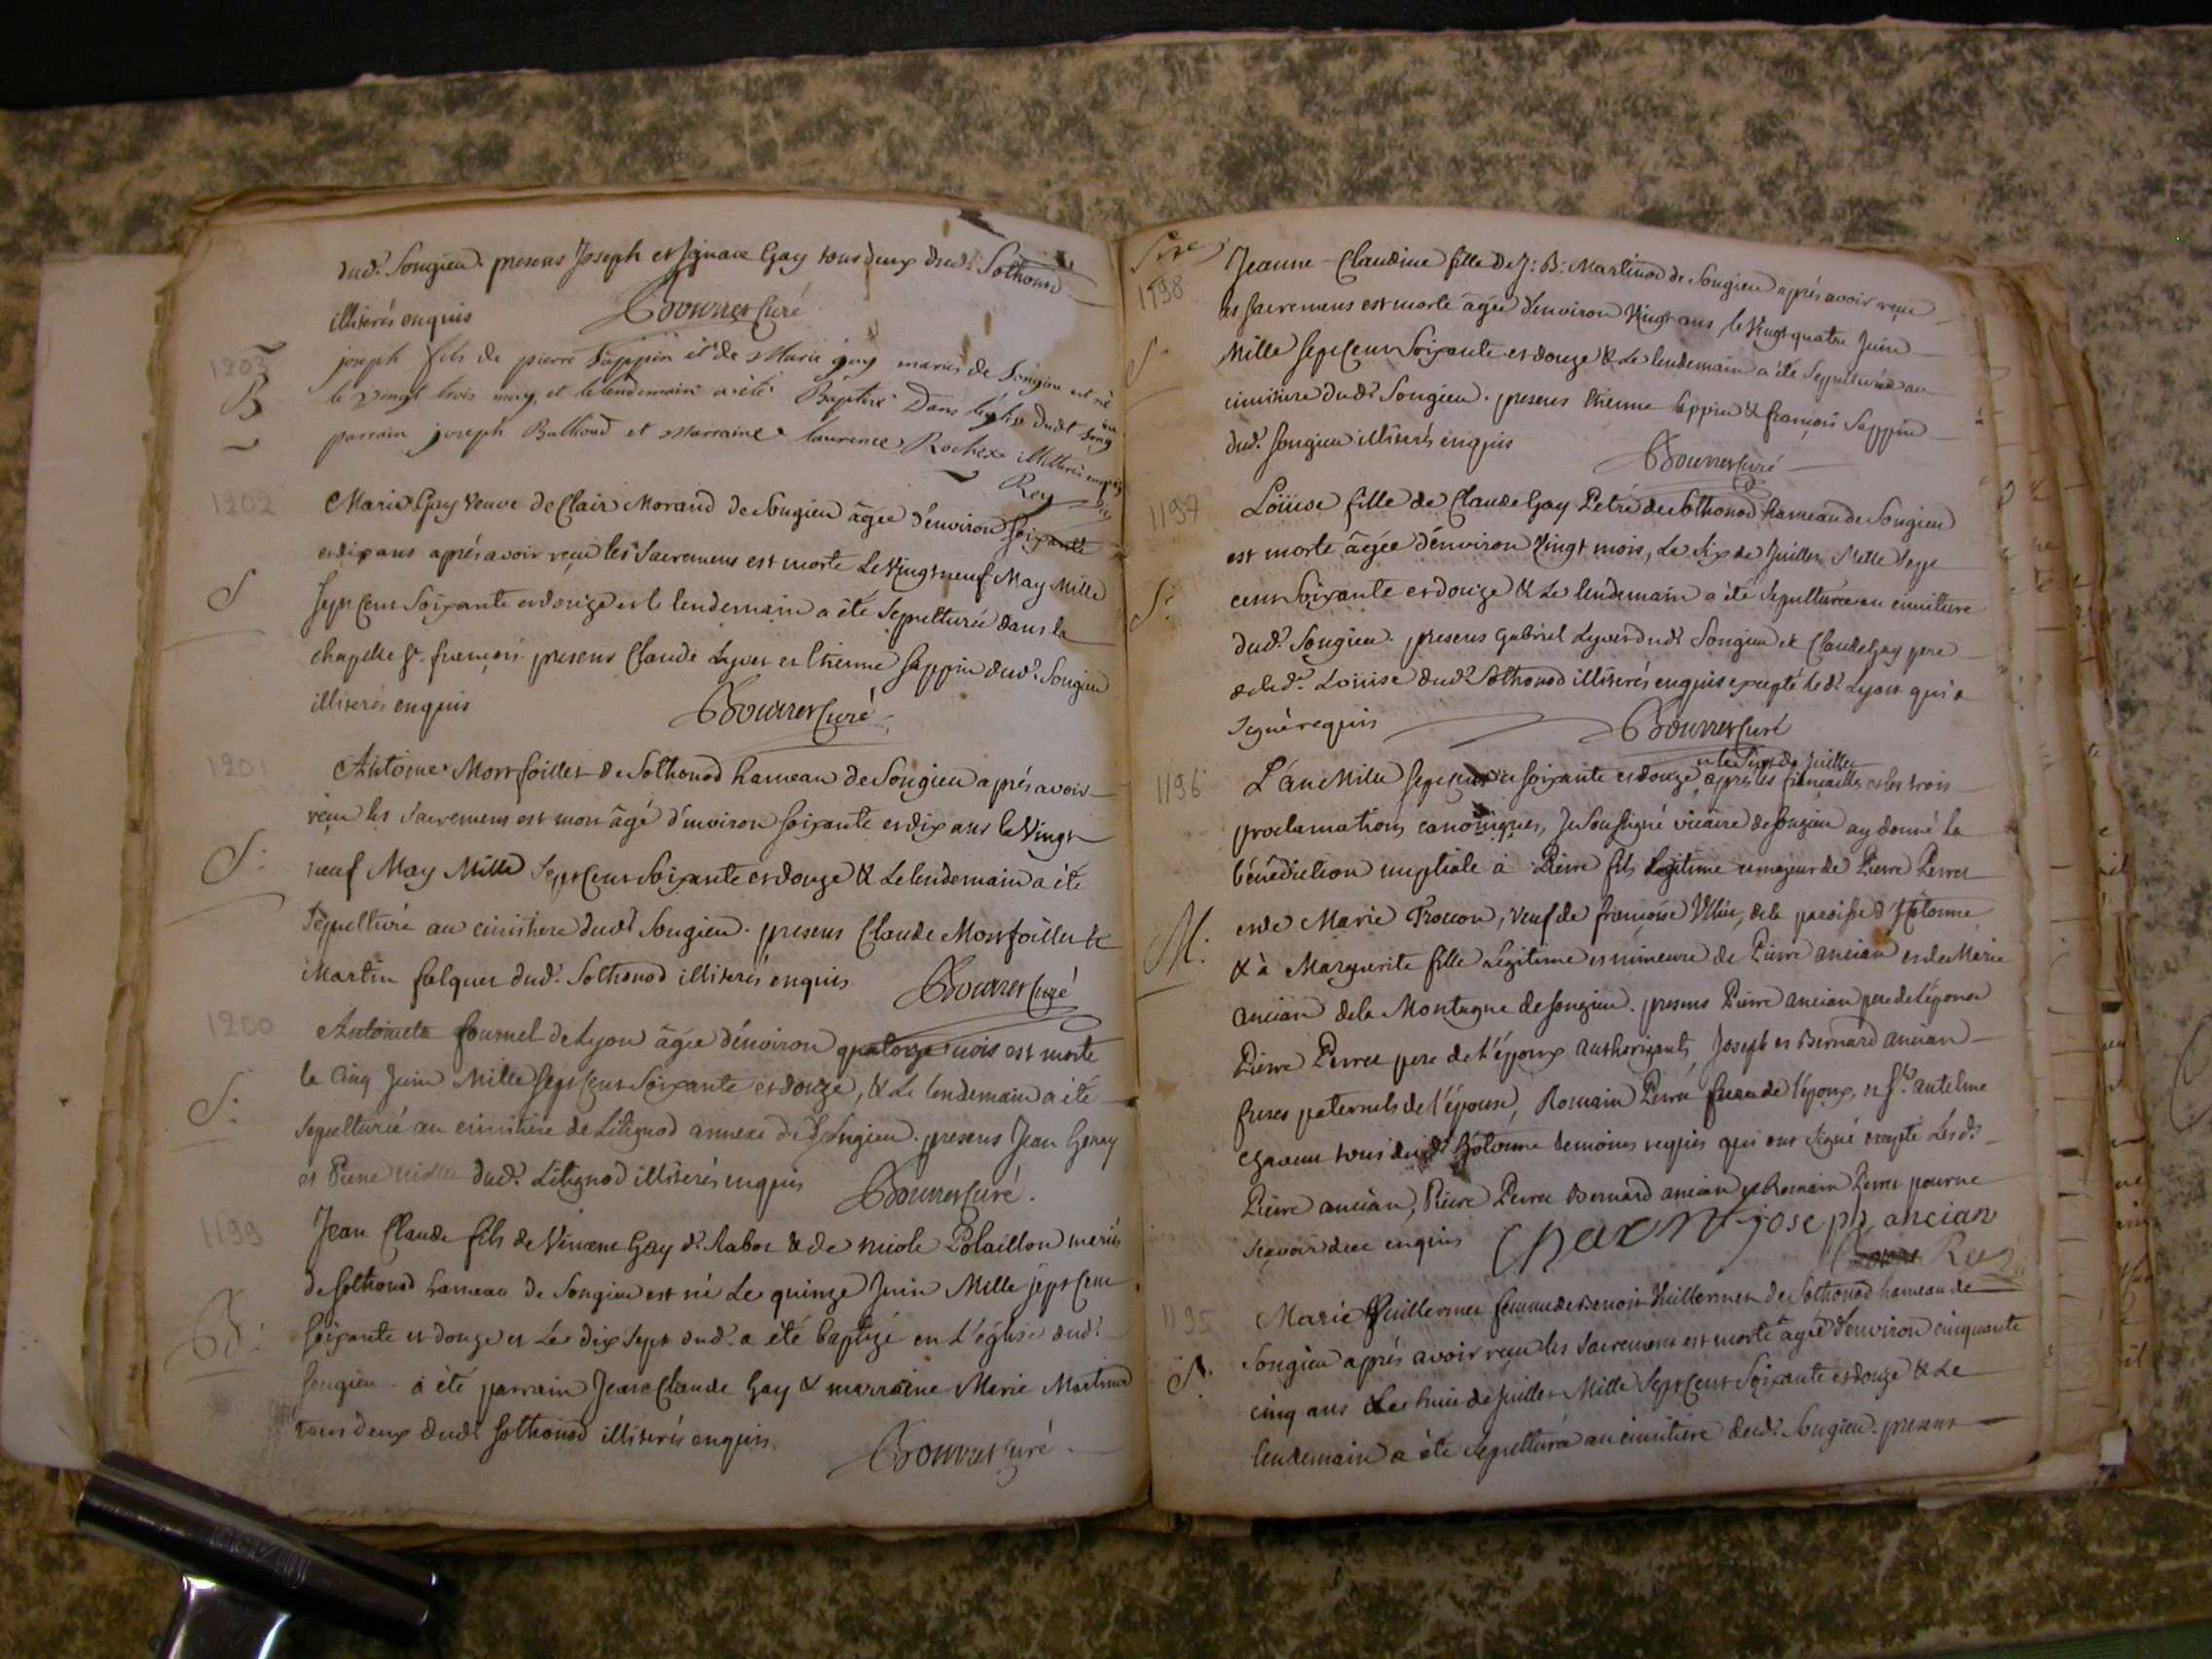 dud.t Songieu. presens Joseph et Ignace Gay tous deux dud.t Sothonod
illiterés enquis Bourret Curé
1203
B
joseph fils de pierre Sappin et de Marie gay mariés de Songieu est né
le vingt trois may, et le lendemain a été Baptisé Dans l'eglise dudt
parrain joseph Balthoud et Marraine laurence Rochex illiterés enquis
Rey
1202
S
Marie Gay veuve de Clair Morand de Songieu âgée d'environ soixante
et dix ans aprés avoir reçu les Sacremens est morte Le Vingt neuf May Mille
sept Cent Soixante et douze et le lendemain a été Sepulturée dans la
chapelle St. françois presens Claude Lyvet et Etienne Sappin dud.t Songieu
illiterés enquis Bourret Curé
1201
S.
Antoine Montfoillet de Sothonod hameau de Songieu aprés avoir
reçu les Sacremens est mort âgé d'environ soixante et dix ans le Vingt
neuf May Mille Sept Cent Soixante et douze & Le lendemain a été
Sepulturé au cimitiere dudt Songieu. presens Claude Montfoillet &
Martin falquet dud.t Sothonod illiterés enquis Bourret Curé
1200
S.
Antoineta fournel de Lyon âgée d'environ quatorze mois est morte
le Cinq Juin Mille Sept Cent Soixante et douze, & Le lendemain a été
Sepulturée au cimitiere de Lilignod annexe de Songieu. presens Jean Genay
et Piene dud.t Lilignod illiterés enquis Bourret Curé.
1199
B.
Jean Claude fils de Vincent Gay d.t Rabot & de Nicole Polaillon mariés
de Sothonod hameau de Songieu est né Le quinze Juin Mille sept Cent
soixante et douze et Le dix Sept dud.t a été baptizé en L'église dud.t
Songieu. a été parrain Jean Claude Gay & marraine Marie Martinod
tous deux dudt Sothonod illiterés enquis. Bourret Curé
1198
S.
Jeanne-Claudine fille de J: B: Martinod de Songieu aprés avoir reçu
les sacremens est morte âgée d'environ Vingt ans, le Vingt quatre Juin
Mille Sept Cent Soixante et douze & Le lendemain a été Sepulturée au
cimitiere dudt Songieu. presens Etienne Sappin & françois Sappin
dud.t Songieu illiterés enquis Bourret Curé
1197
S.
Loüise fille de Claude Gay Petré de Sothonod hameau de Songieu
est morte âgée d'environ Vingt mois, Le Six de Juillet Mille Sept
cent Soixante et douze & Le lendemain a été Sepulturée au cimitiere
dud.t Songieu. presens Gabriel Lyvet dudt Songieu et Claude Gay pere
de lad.te Loüise dud.t Sothonod illiterés enquis excepté led.t Lyvet qui a
signé requis Bourret Curé
1196
M.
et le Sept de juillet
L'an Mille sept cent et soixante et douze, aprés les fiancailles et les trois
proclamations canoniques, Je Soussigné vicaire de Songieu ay donné la
bénédiction nuptiale à Pierre fils légitime et majeur de Pierre Perret
et de Marie Troccon, veuf de françoise de la paroisse d'Hotonne
& à Marguerite fille Légitime et mineure de Pierre ancian et de Marie
ancian de la Montagne de Songieu. presens Pierre ancian pere de l'épouse
Pierre Perret pere de l'époux authorizants, Joseph et Bernard ancian
freres paternels de l'épouse, Romain Perret frere de l'époux, et Sr. antelme
Chavent tous dud.t Hotonne temoins requis qui ont Signé excepté Les ds.
Pierre ancian, Pierre Perret Bernard ancian et Romain Perret pour ne
scavoir de ce enquis Chavent joseph ancian
Rey
1195
S.
Marie Vuillermet femme de Benoit Vuillermet de Sothonod hameau de
Songieu aprés avoir reçu les Sacremens est morte agée d'environ cinquante
cinq ans Le huit de Juillet Mille Sept Cent Soixante et douze & Le
lendemain a été Sepulturée au cimitiere dud.t Songieu. presens